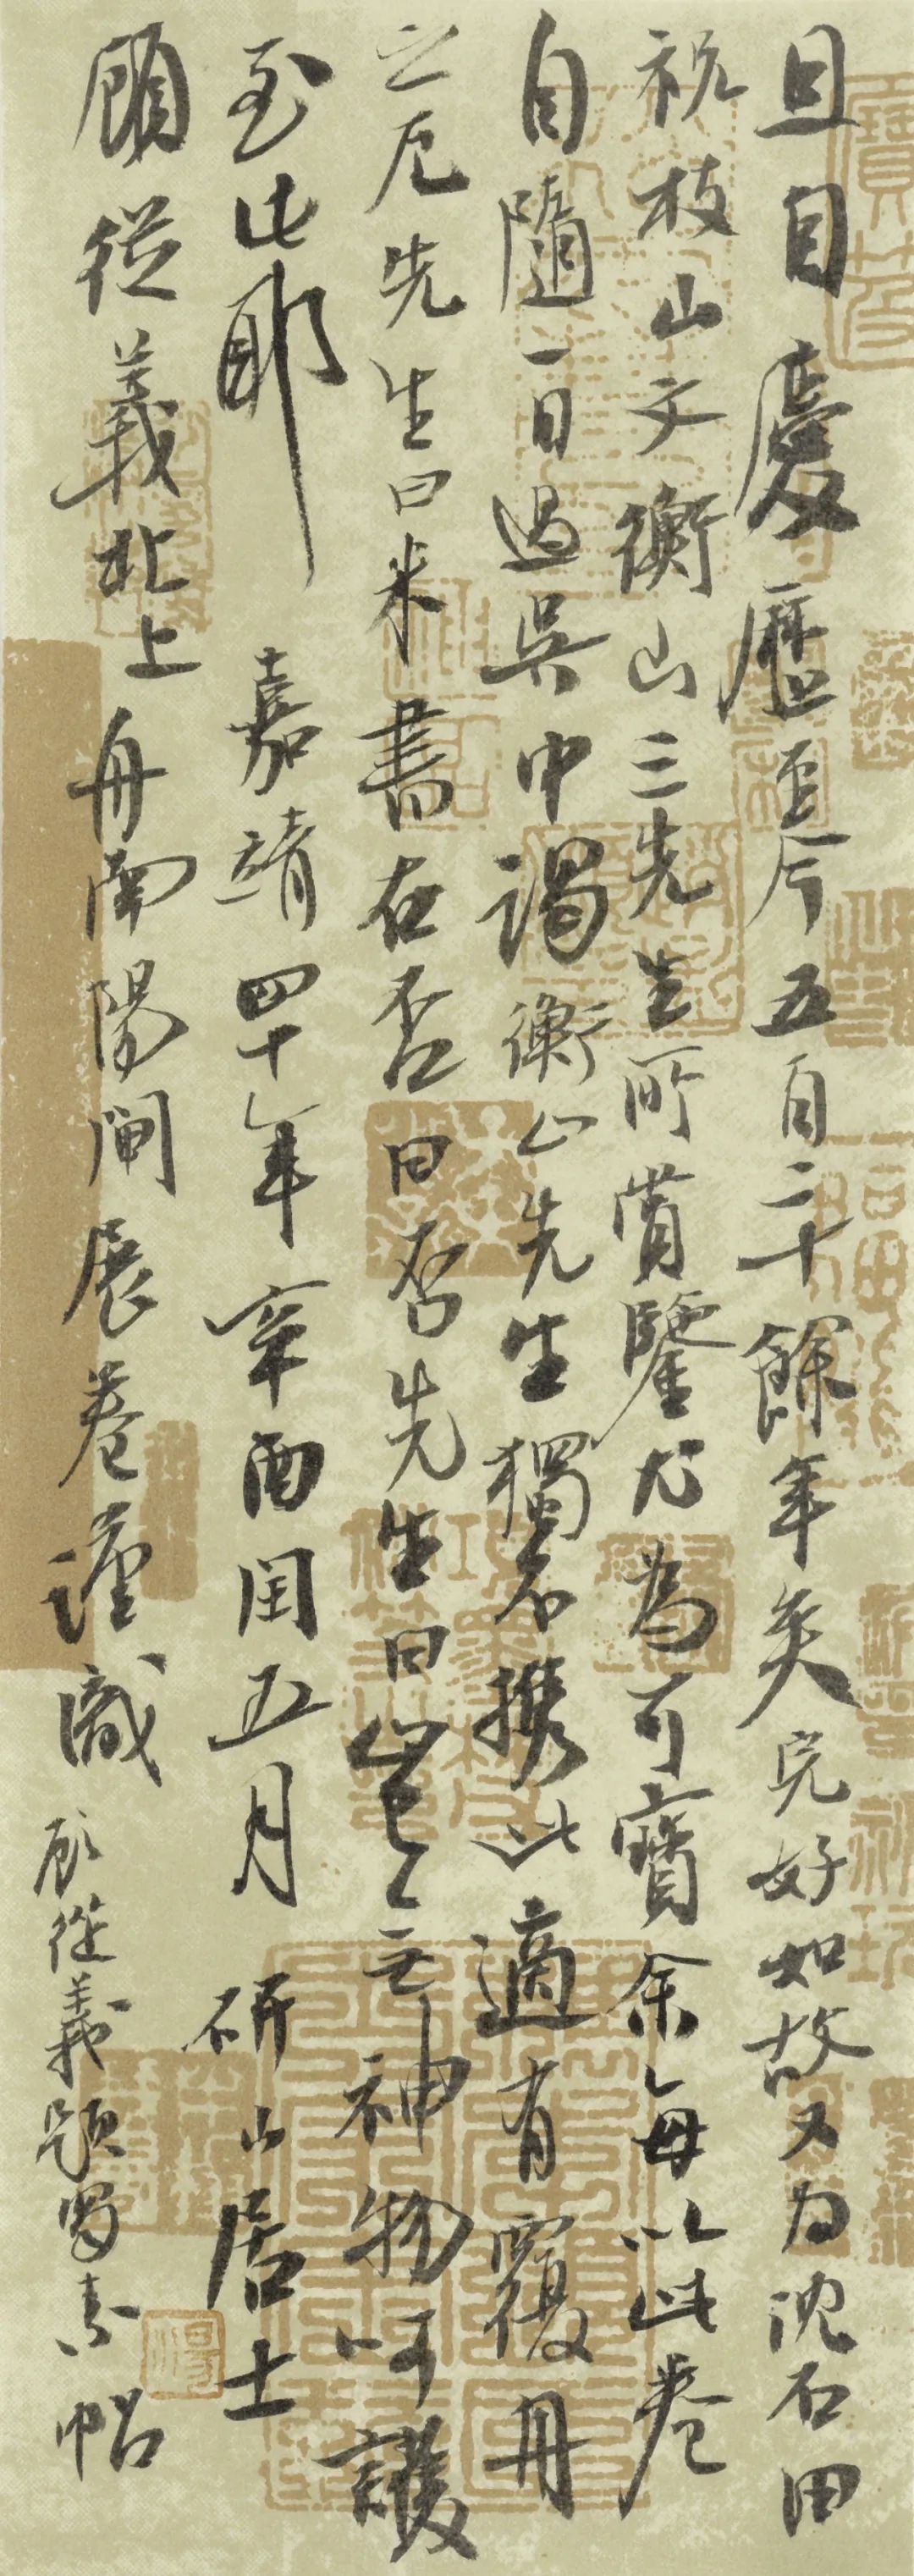 且自慶歷至今五百二十餘年矣完好如故又为沈石田
祝枝山文衡山三先生所賞鑒尤為可寶余每以此卷
自隨一日過吳中謁衡山先生獨不携此適有覆舟
之厄先生曰米書在否曰否先生曰豈亡神物呵護
至此耶 嘉靖四十年辛酉閏五月 研山居士
顧從義北上舟南陽閘展卷謹識
顧從義題蜀素帖